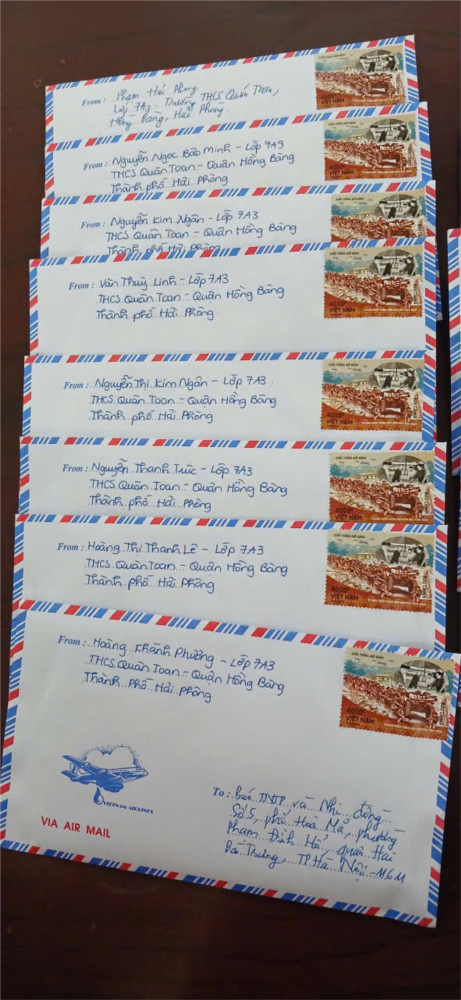 From : Phạm Hải Phong
Lớp 7A3 - Trường THCS Quán Toan,
Hồng Bàng, Hải Phòng.
From : Nguyễn Ngọc Bảo Minh - Lớp 7A3
THCS Quán Toan - Quận Hồng Bàng
Thành phố Hải Phòng
VIỆT NAM
From : Nguyễn Kim Ngân - Lớp 7A3
THCS Quán Toan - Quận Hồng Bàng
Thành phố Hải Phòng
From : Văn Thuỳ Linh - Lớp 7A3
THCS Quán Toan - Quận Hồng Bàng
Thành phố Hải Phòng.
4000đ
VIỆT NAM
From : Nguyễn Thị Kim Ngân - Lớp 7A3.
THCS Quán Toan - Quận Hồng Bàng
Thành phố Hải Phòng
4000đ
VIỆT NAM
From : Nguyễn Thanh Trúc - Lớp 7A3
THCS Quán Toan - Quận Hồng Bàng
Thành phố Hải Phòng
4000đ
VIỆT NAM
From : Hoàng Thị Thanh Lê - Lớp 7A3
THCS Quán Toan - Quận Hồng Bàng
Thành phố Hải Phòng
4000đ
VIỆT NAM
From : Hoàng Khánh Phương - Lớp 7A3
THCS Quán Toan - Quận Hồng Bàng
Thành phố Hải Phòng
4000đ
VIỆT NAM
VIETNAM AIRLINES
VIA AIR MAIL
To : báo TNTP và Nhi đồng
Số 5, phố Hoà Mã, phường
Phạm Đình Hổ, quận Hai
Bà Trưng, TP Hà Nội